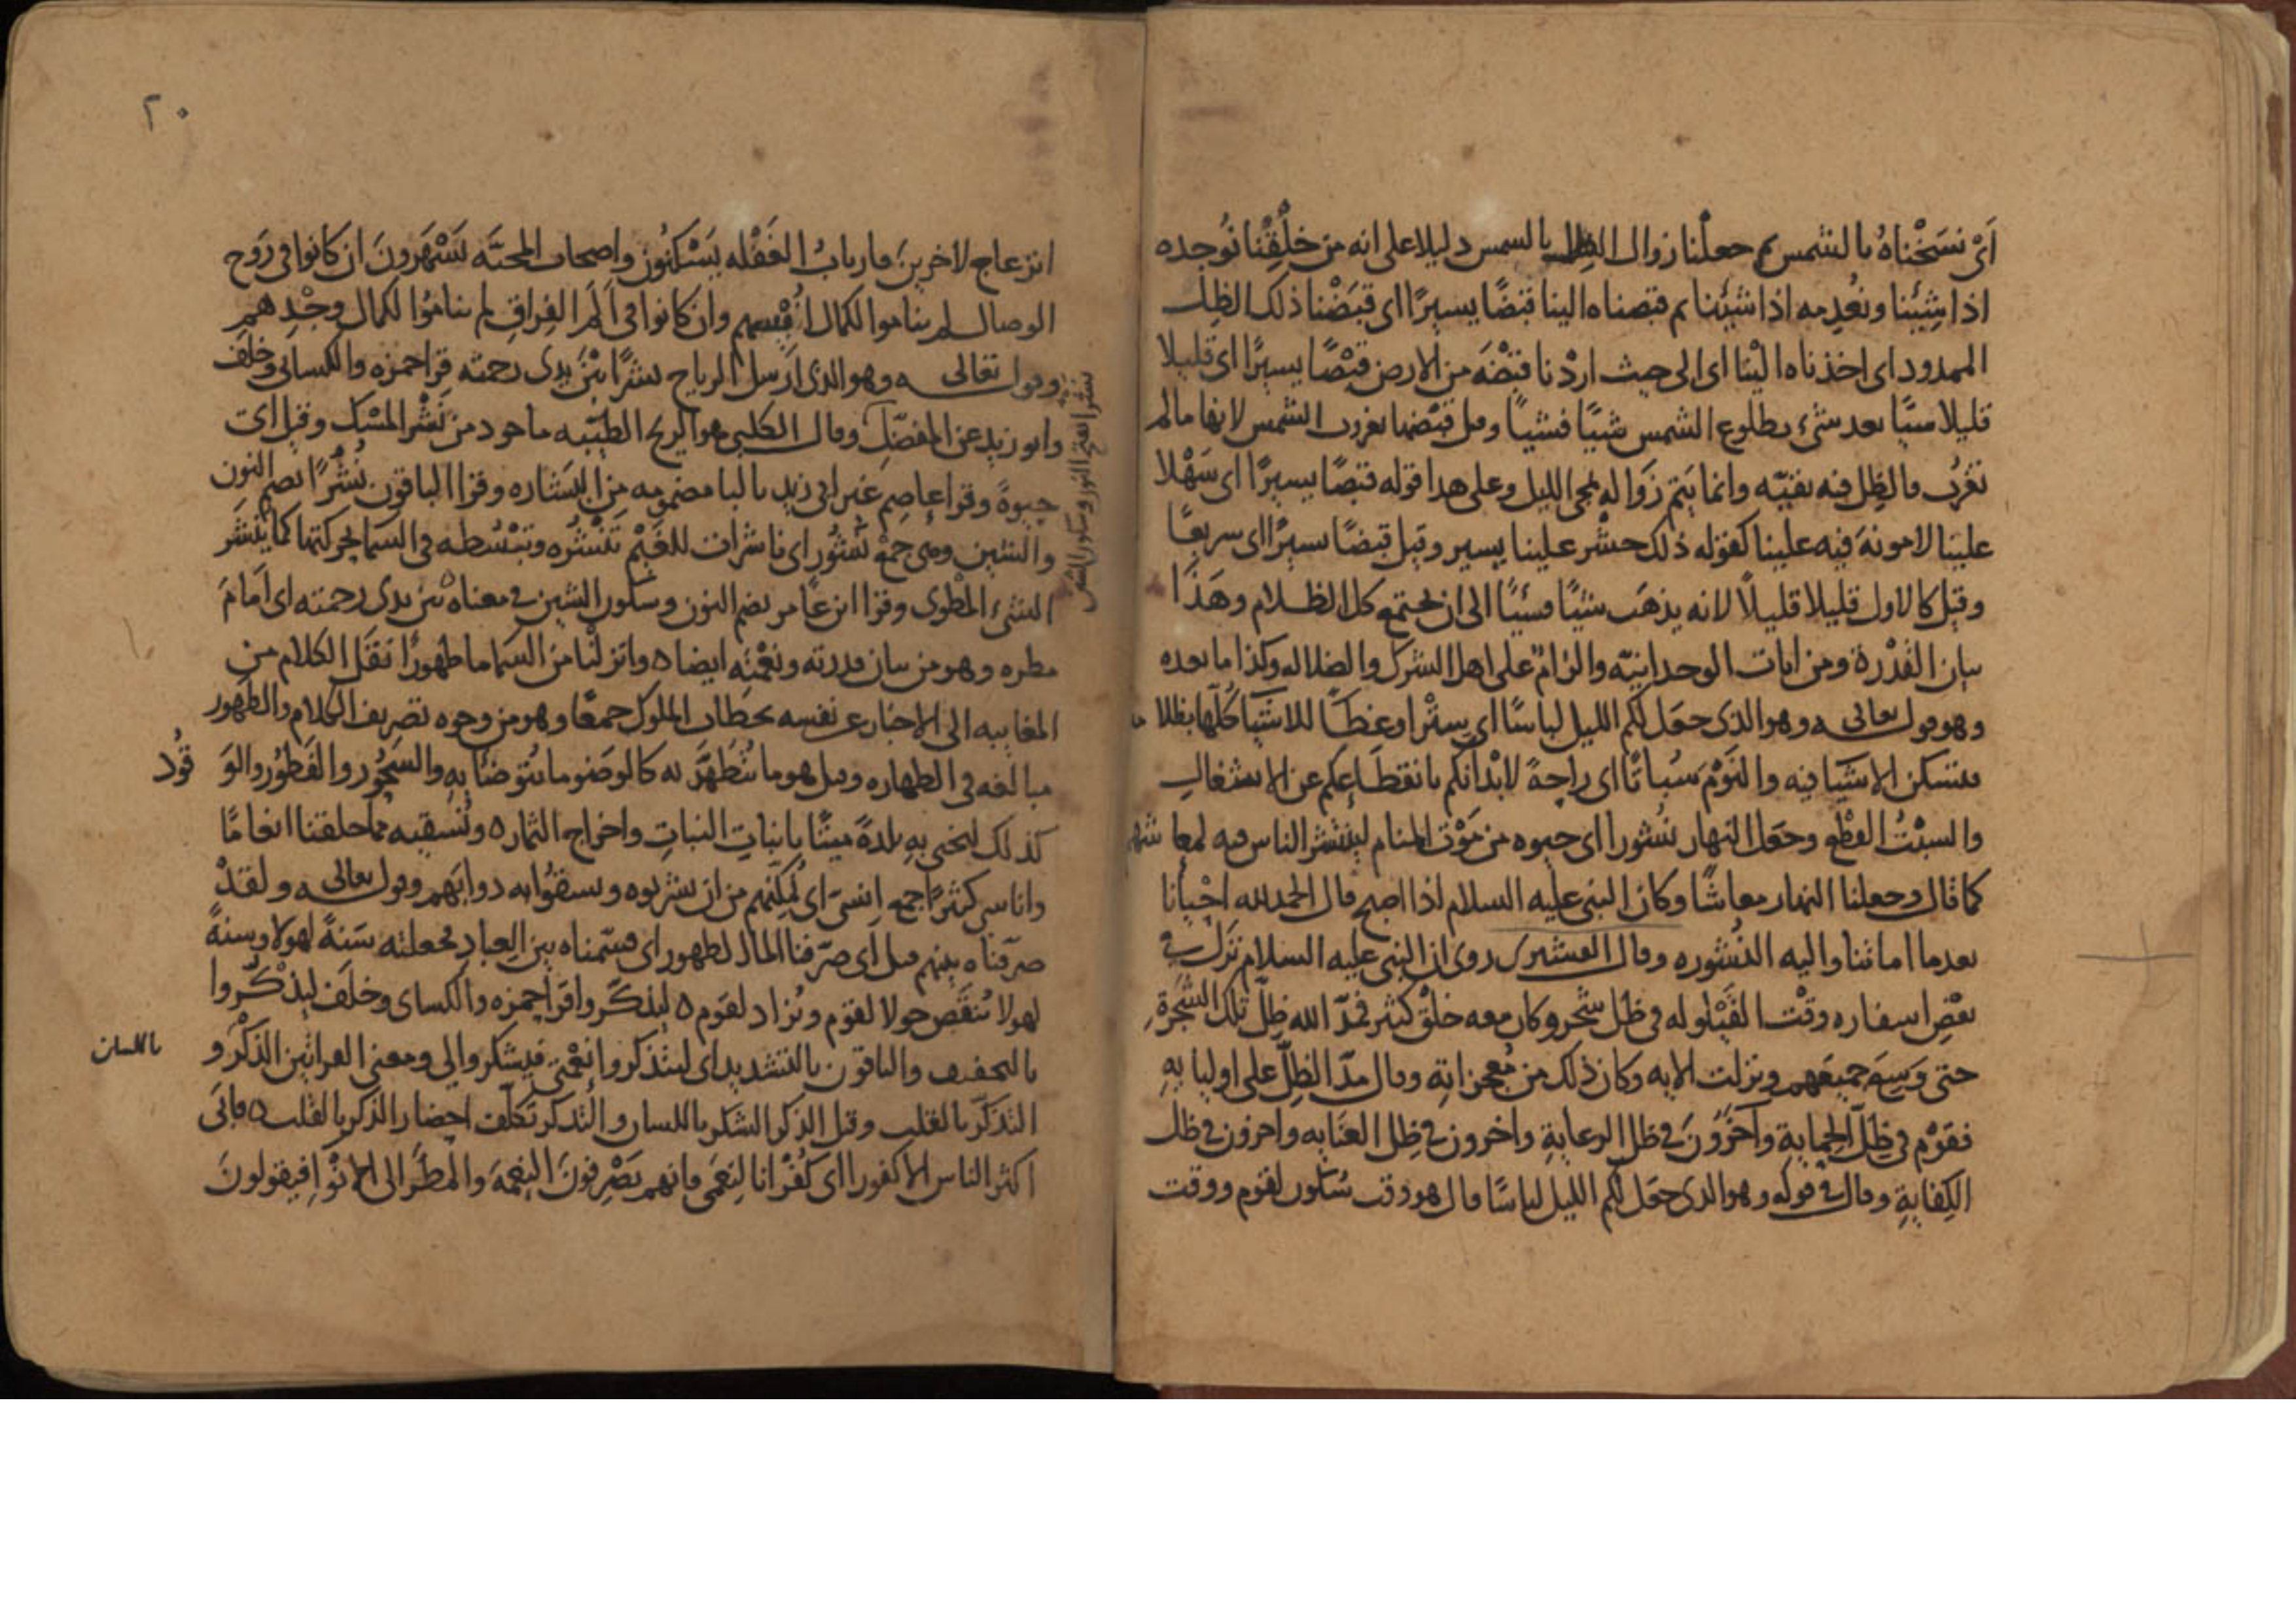 اَىْ نسَخْناهُ بالشمس ثم جعلْنا زوال الظل بالشمس دليلا على انه من خلْقِنا نُوجده
اذا شِئنا ونُعدِمه اذا شئنا ثم قبضناه الينا قبضًا يسيرًا اى قبَضْنا ذلك الظِل
الممدود اى اخذناه الْينا اى الى حيث ارَدْنا قبضَه من الارض قبْضًا يسيرًا اى قليلا
قليلا شيئًا بعد شىء بطلوع الشمس شيئًا فشيئًا وقيل قبَضْنا بغروب الشمس لانها ما لم
تغرُب فالظِل فيه بقيّه وانما يَتم زوَاله بمجى الليل وعلى هذا قوله قبضًا يسيرًا اى سَهْلا
علينا لا مونهَ فيه علينا كقوله ذلك حشْر علينا يسير وقيل قبضًا يسيرًا اى سريعًا
وقيل كالاول قليلا قليلاً لانه يذهَب شيئًا فشيئًا الى ان يجتمع كل الظلام وهَذَا
بيان القُدْرة ومن ايات الوحدانيّه والزامٌ على اهل الشرك والضلاله وكذا ما بعده
وهو قول تعالى وهو الذى جعَل لكم الليل لباسًا اى سِتْرا وغطاً للاشيَا كُلّها بظلا مه
فتسكن الاشيَا فيه والنوْمَ سُباتًا اى راحةً لابْدانكم بانقطَاعكم عن الاشغالِ
والسبْتُ القطْع وجعَل النهار نُشورا اى حيوه من مَوْت المنام لينتشر الناس فيه لمعاشهم
كما قال وجعلنا النهار معاشًا وكان النبى عليه السلام اذا اصبح قال الحمد لله احْيانا
بعد ما اماتنا واليه النُشوره وقال القشيرى روى ان النبى عليه السلام نزَل فى
بعْضِ اسفاره وقْت القَيْلوله فى ظل شجَر وكان معه خلْق كثير فمَدّ الله ظِلّ تلك الشجَرةِ
حتى وَسِعَ جميعَهم ونزلت الايه وكان ذلك من مُعجزاته وقال مدّ الظِلّ على اوليا بهِ
فقوْم فى ظِلّ الحِمايةِ وآخَرُونَ فى ظل الرعايةِ واخرون فى ظِل العنَايه واخرون فى ظل
الكِفايةِ وقال فى قوله وهو الذى جعَل لكم الليل لباسًا قال هو وقت سُكون لقوم ووقت
٢٠
انزعاج لاخرين؛ فارباب الغَفْله يَسْكنُون واصحاب المحبَّه يَسْهَرونَ ان كانوا فى رَوح
الوصال لم يناموا لكمال اُنْسِهم وان كانوا فى اَلَم الفِراقِ لم يناموُا لكمال وجْدِهمِ
وقول تعالى وهو الذى اَرسل الرياح نشرًا بيْن يدى رحمته قراحمزه والكسائى وخلَف
وابو زيد عن المفضّل وقال الكلبى هو الريح الطيّبه ماخوذ من نَشْر المسْك وقيل اى
حيوةً وقرا عاصِم غير ابى زيد بالبا مضمومه من البِشاره وقرا الباقون نُشُرًا بضم النون
والشين وهى جمعْ نُشُور اى ناشرات للغَيْم تنْشُره وتبْسُطه فى السما بحركتها كما ينْشَر
الشىْ المطْوى وقرا ابن عَامر بضم النون وسكون الشين فى معناه بين يدى رحمته اى اَمامَ
مطره وهو من بيان قدرته ونعْمته ايضا ٥ وانزلنا من السما ما طهورًا نقَل الكلام من
المغايبه الى الاخبار عن نفسه بخطاب الملوك جمعًا وهو من وجوه تصريف الكلام والطَهور
مبالغه فى الطهاره وقيل هو ما يُتطَهَّر به كالوضو ما يُتوضأ بهِ والسَحُور والفَطُور والوَ قُود
كذلك لنحيى بهِ بلدةً ميتًا بانبات النباتِ واخراج الثمار ٥ ونُسقيه مما خلقنا انعامًا
واناسى كثيرًا جمع اِنسى اى نُمكّنهم من ان يشربوه ويسقُوا به دوابَهم وقول تعالى ولقدْ
صرّفناه بينهم قيل اى صَرّفنا الما الطهور اى قسّمناه بين العباد فجعلته سَنةً لهولا وسنةً
لهولا نُنقَص حولا لقوم ونُزاد لقوم ٥ ليذكَّروا قراحمزه والكسائى وخلَف ليذْكُروا
بالتخفيف والباقون بالتشديد اى ليتذكروا نِعْمتى فيشكروا لى ومعنى القراتين الذكْر و باللسان
التذكّر بالقلب وقيل الذكر الشكر باللسان والتذكر تكلّف احضار الذكر بالقلب ٥ فابَى
اكثر الناس الا كفورا اى كُفْرانا لنِعَمى فانهم يَصْرِفونَ النِعمهَ والمطَر الى الانْوا فيقولونَ
نشرا بفتح النون وسكون الشين